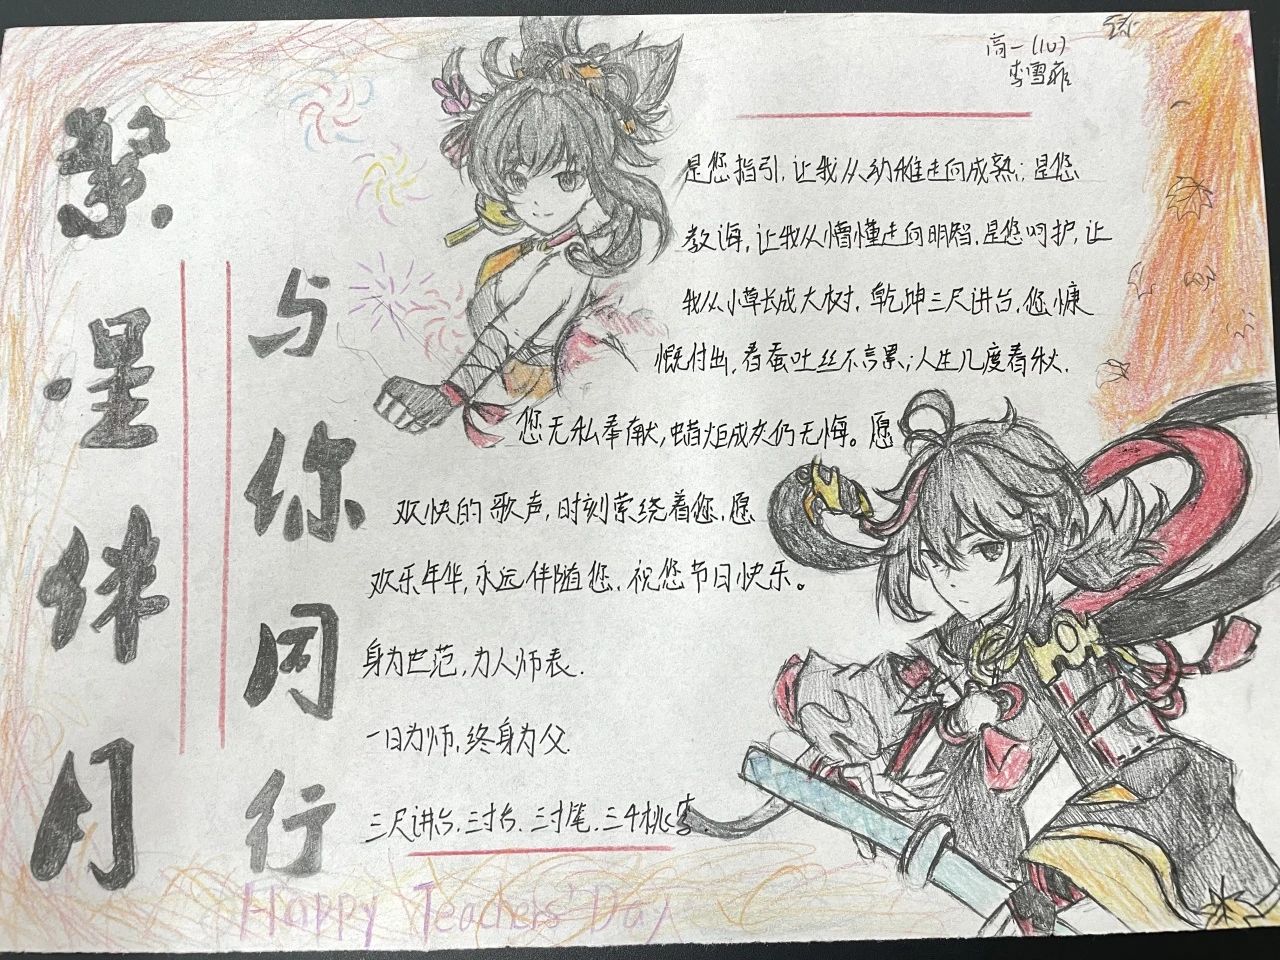 繁星伴月
与你同行
高一(10)
李雪菲
是您指引,让我从幼稚走向成熟;是您
教诲,让我从懵懂走向明智,是您呵护,让
我从小草长成大树.乾坤三尺讲台,您慷
慨付出,春蚕吐丝不言累;人生几度春秋.
您无私奉献,蜡炬成灰仍无悔。愿
欢快的歌声,时刻萦绕着您,愿
欢乐年华,永远伴随您.祝您节日快乐。
身为世范,为人师表.
一日为师,终身为父.
三尺讲台,三寸舌.三寸笔.三千桃李.
Happy Teachers' Day